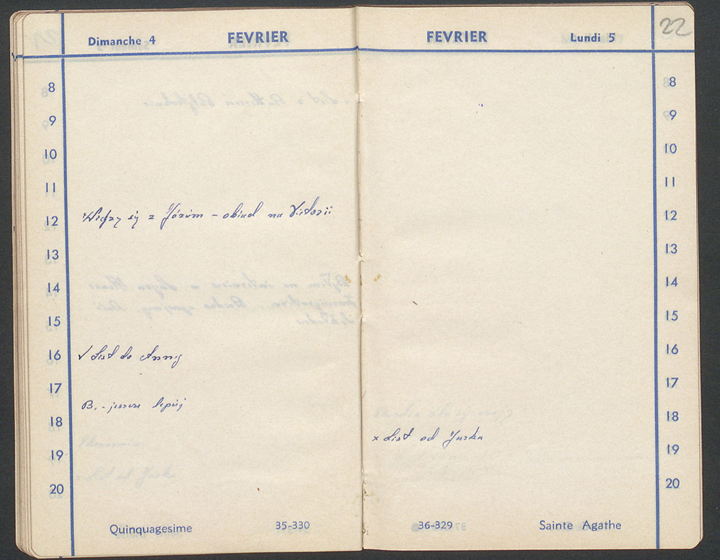 Dimanche 4 FEVRIER
8
9
10
11
12
się z Józiem - obiad na Victorii
13
14
15
16
√ List do Anny
17
B. - jeszcze lepiej
18
19
20
Quinquagesime 35-330
FEVRIER Lundi 5
22
8
9
10
11
12
13
14
15
16
17
18
x List od Jurka
19
20
36-329 Sainte Agathe